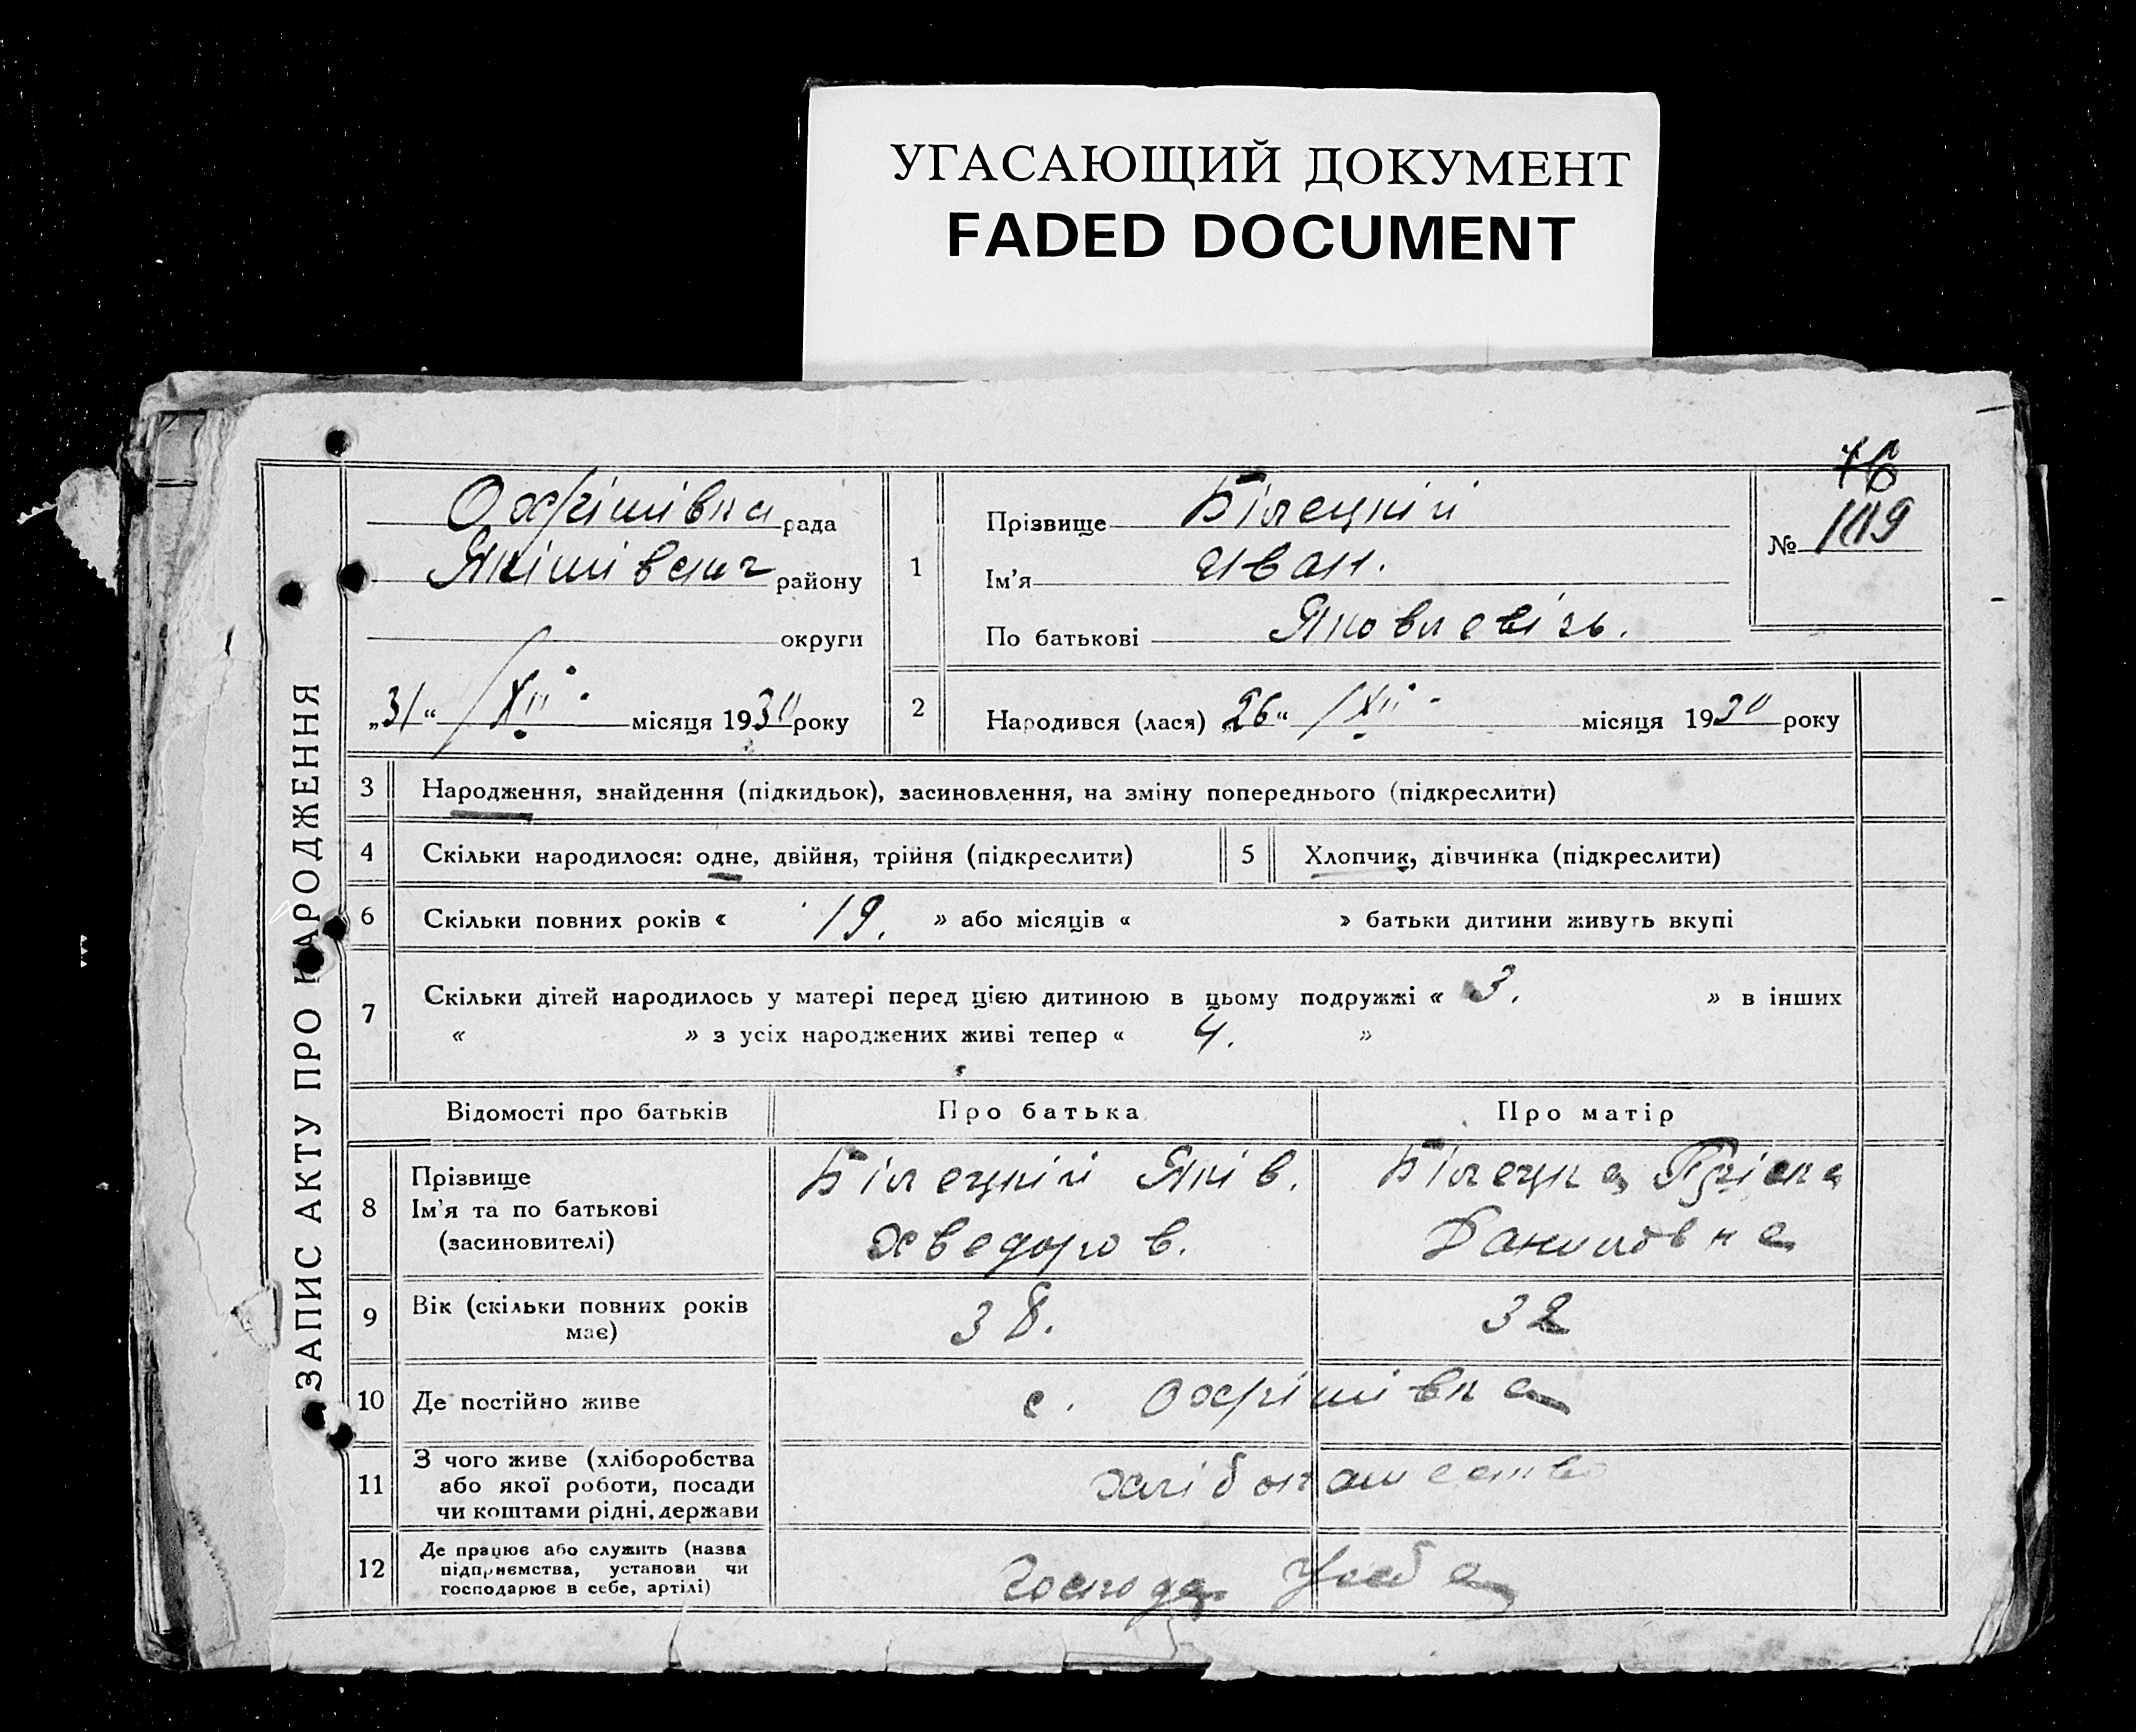 УГАСАЮЩИЙ ДОКУМЕНТ
FADED DOCUMENT
ЗАПИС АКТУ ПРО НАРОДЖЕННЯ
Охрімівка рада
Якімівськ району
округи
„31“ /XII місяця 1930 року
1
Прізвище Білецкий
Ім'я Иван.
По батькові Яковлевічь.
№ 109
2
Народився (лася) „26“ /XII місяця 1930 року
3 Народження, знайдення (підкидьок), засиновлення, на зміну попереднього (підкреслити)
4 Скільки народилося: одне, двійня, трійня (підкреслити) 5 Хлопчик, дівчинка (підкреслити)
6 Скільки повних років « 19. » або місяців « » батьки дитини живуть вкупі
7 Скільки дітей народилось у матері перед цією дитиною в цьому подружжі « 3. » в інших
« » з усіх народжених живі тепер « 4. »
Відомості про батьків Про батька Про матір
8 Прізвище
Ім'я та по батькові
(засиновителі)
Білецкій Яків.
Хведоров.
Білецка
Даниловна
9 Вік (скільки повних років
має)
38. 32
10 Де постійно живе с. Охрімівка
11 З чого живе (хліборобства
або якої роботи, посади
чи коштами рідні, держави
хлібопашество
12 Де працює або служить (назва
підприємства, установи чи
господарює в себе, артілі)
Господар Усебе